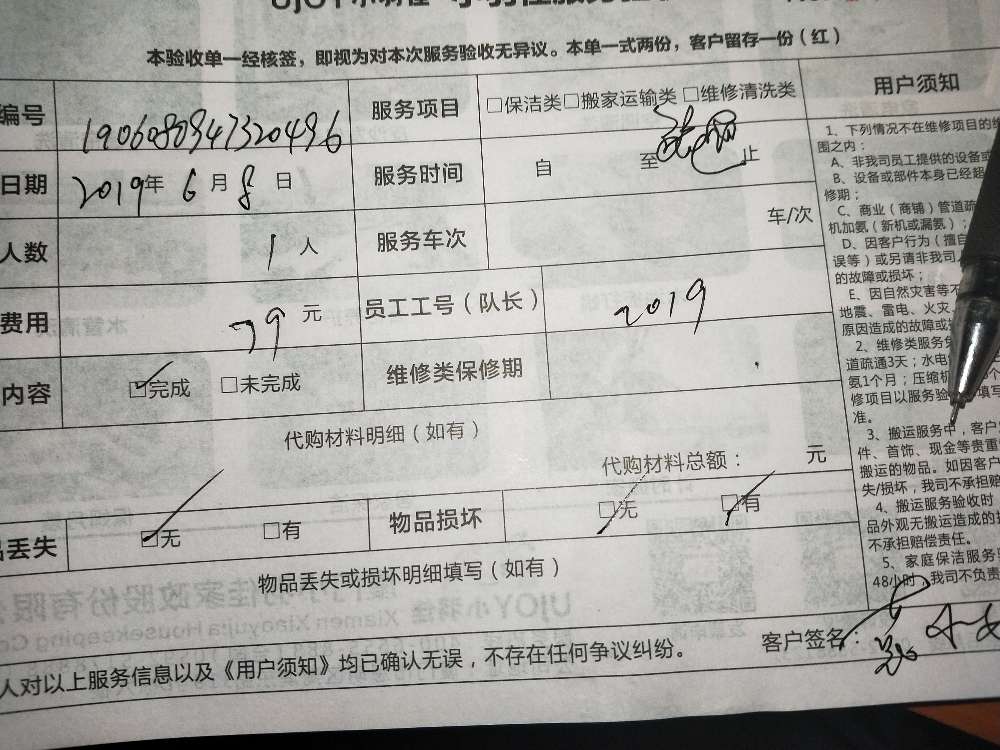 UJOY小羽佳
本验收单一经核签，即视为对本次服务验收无异议。本单一式两份，客户留存一份（红）
编号 1906080947320496 服务项目 □保洁类□搬家运输类 □维修清洗类
日期 2019年 6 月 8 日 服务时间 自 至 止
人数 1 人 服务车次 车/次
费用 79 元 员工工号（队长） 2019
内容 ☑完成 □未完成 维修类保修期
代购材料明细（如有）
代购材料总额： 元
品丢失 ☑无 □有 物品损坏 □无 □有
物品丢失或损坏明细填写（如有）
人对以上服务信息以及《用户须知》均已确认无误，不存在任何争议纠纷。
客户签名：
用户须知
1、下列情况不在维修项目的维
围之内：
A、非我司员工提供的设备或
B、设备或部件本身已经超
修期；
C、商业（商铺）管道疏
机加氨（新机或漏氨）；
D、因客户行为（擅自
误等）或另请非我司
的故障或损坏；
E、因自然灾害等不
地震、雷电、火灾、
原因造成的故障或
2、维修类服务
道疏通3天；水电
氨1个月；压缩机 个
修项目以服务验 填写
准。
3、搬运服务中，客户
件、首饰、现金等贵重
搬运的物品。如因客户
失/损坏，我司不承担赔
4、搬运服务验收时
品外观无搬运造成的
不承担赔偿责任。
5、家庭保洁服务
48小时，我司不负责